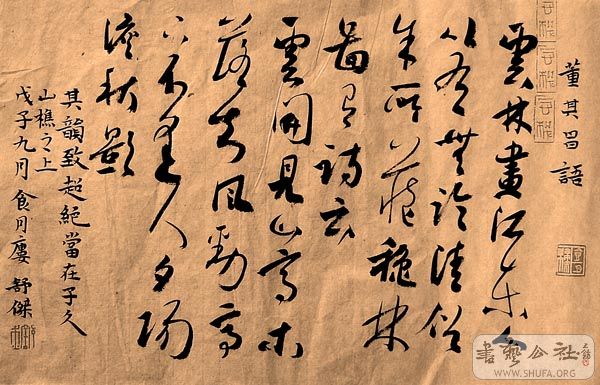 董其昌語
雲林畫江東人
以有無論清俗
余所藏穐林
圖有詩云
雲開見山高木
落知風勁亭
下不逢人夕陽
澹秋影
其韻致超絕當在子久
山樵之上
戊子九月食月廔舒傑
書藝公社
WWW.SHUFA.ORG